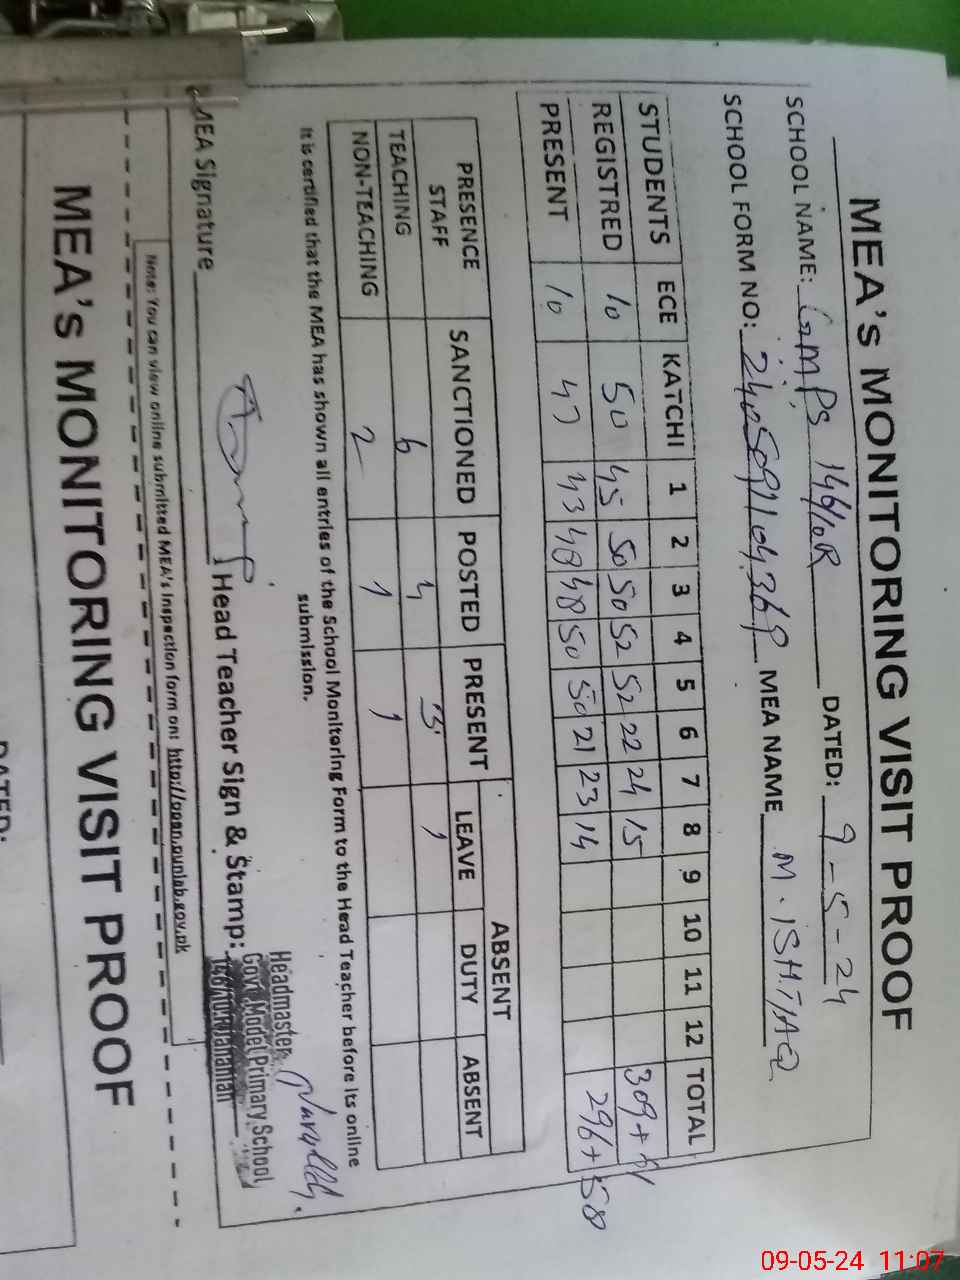 MEA's MONITORING VISIT PROOF
SCHOOL NAME: GMPS 146/10R DATED: 9-5-24
SCHOOL FORM NO: 2405091104369 MEA NAME M. ISHTIAQ
STUDENTS ECE KATCHI 1 2 3 4 5 6 7 8 9 10 11 12 TOTAL
REGISTRED 10 50 45 50 50 52 52 22 24 15 309+61
PRESENT 10 47 43 48 48 50 50 21 23 14 296+58
PRESENCE STAFF SANCTIONED POSTED PRESENT ABSENT
LEAVE DUTY ABSENT
TEACHING 6 4 3 1
NON-TEACHING 2 1 1
It is certified that the MEA has shown all entries of the School Monitoring Form to the Head Teacher before its online
submission.
MEA Signature Head Teacher Sign & Stamp:
Headmaster
Govt. Model Primary School
146/10R Jahanian
Note: You can view online submitted MEA's Inspection form on: http://open.punjab.gov.pk
MEA's MONITORING VISIT PROOF
DATED:
09-05-24 11:07